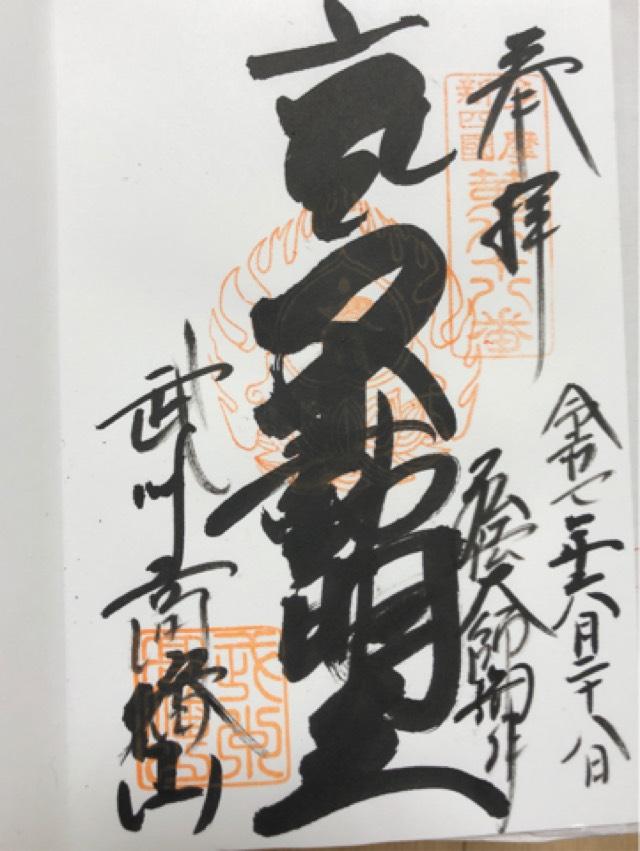 奉拝
令和七年六月二十八日
弘法大師御作
不動明王
武州高幡山
新四國
八十八番